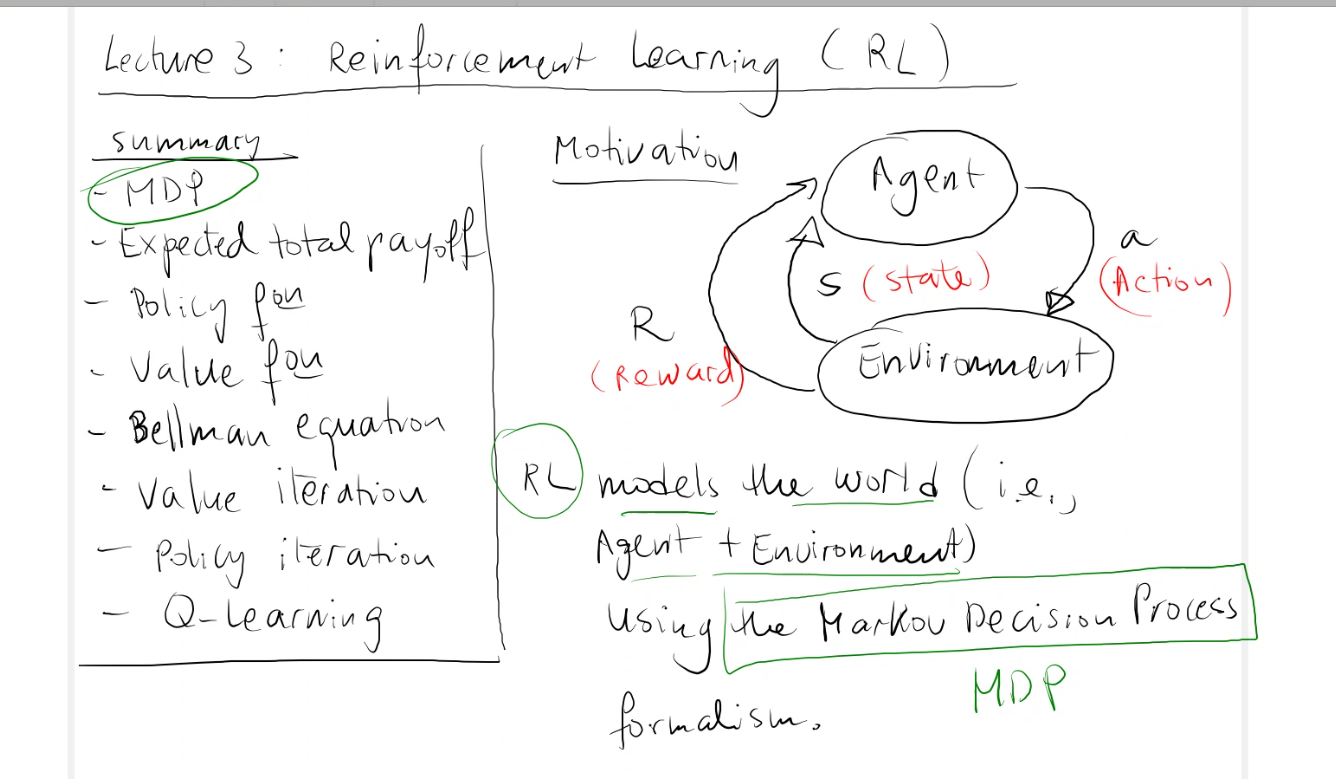 Lecture 3 : Reinforcement Learning (RL)
summary
- MDP
- Expected total payoff
- Policy fon
- Value fon
- Bellman equation
- Value iteration
- Policy iteration
- Q-Learning
Motivation
Agent
a
(Action)
S (state)
R
(Reward)
Environment
RL models the world (i.e.,
Agent + Environment)
using the Markov Decision Process
MDP
formalism.